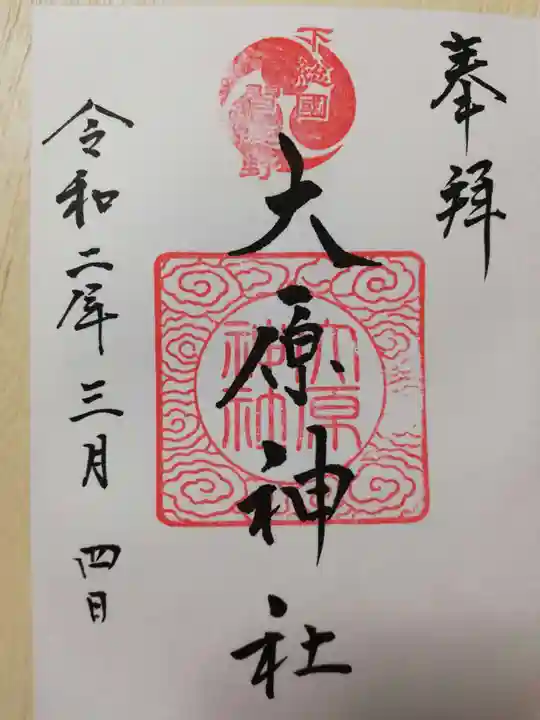 奉拝
下総國
大原神社
大原
神社
令和二年三月四日